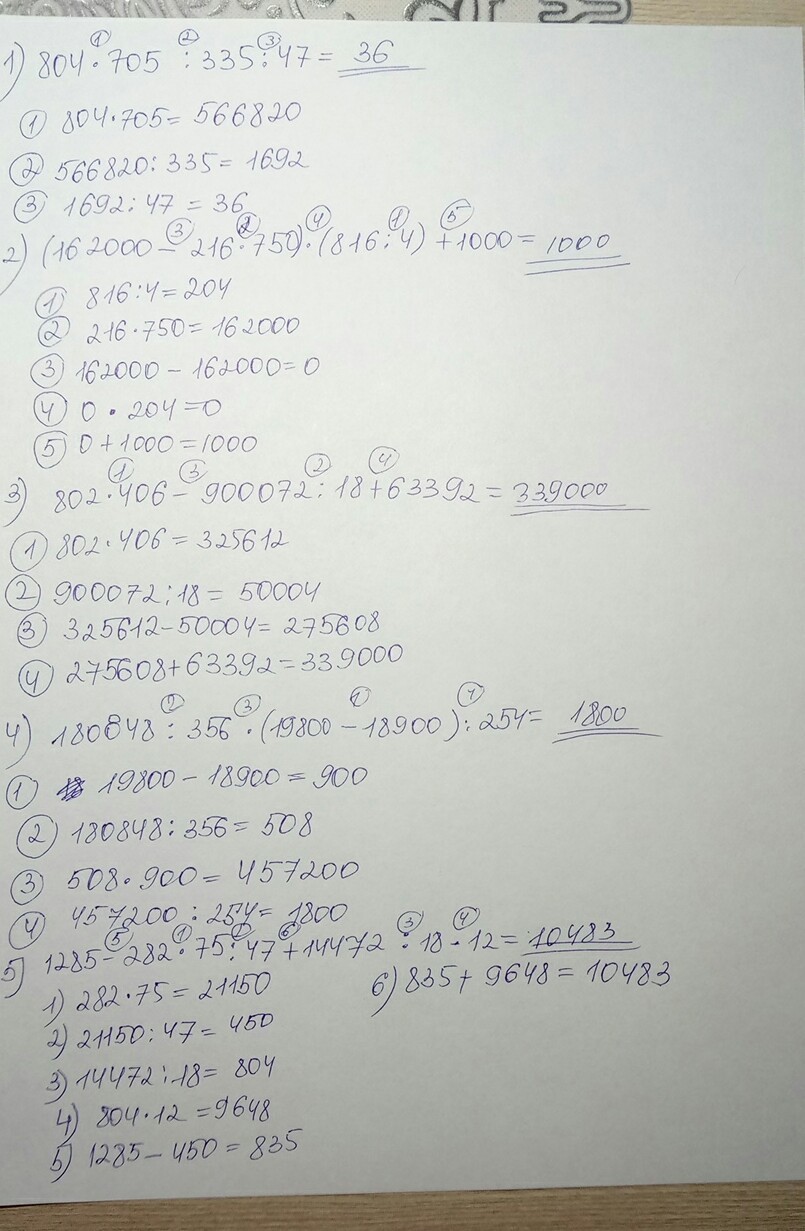 1) 804·705:335:47=36
① 804·705=566820
② 566820:335=1692
③ 1692:47=36
2) (162000-216·750)·(816:4)+1000=1000
① 816:4=204
② 216·750=162000
③ 162000-162000=0
④ 0·204=0
⑤ 0+1000=1000
3) 802·406-900072:18+63392=339000
① 802·406=325612
② 900072:18=50004
③ 325612-50004=275608
④ 275608+63392=339000
4) 180848:356·(19800-18900):254=1800
① 19800-18900=900
② 180848:356=508
③ 508·900=457200
④ 457200:254=1800
5) 1285-282·75:47+14472:18·12=10483
1) 282·75=21150
2) 21150:47=450
3) 14472:18=804
4) 804·12=9648
5) 1285-450=835
6) 835+9648=10483